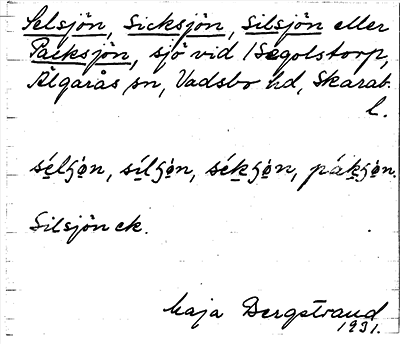 Selsjön, Sicksjön, Silsjön eller
Packsjön, sjö vid Segolstorp,
Älgarås sn, Vadsbo hd, Skarab.
l.
séljo̤n, síljo̤n, sékjo̤n, pákjo̤n.
Silsjön ek.
Maja Bergstrand
1931.